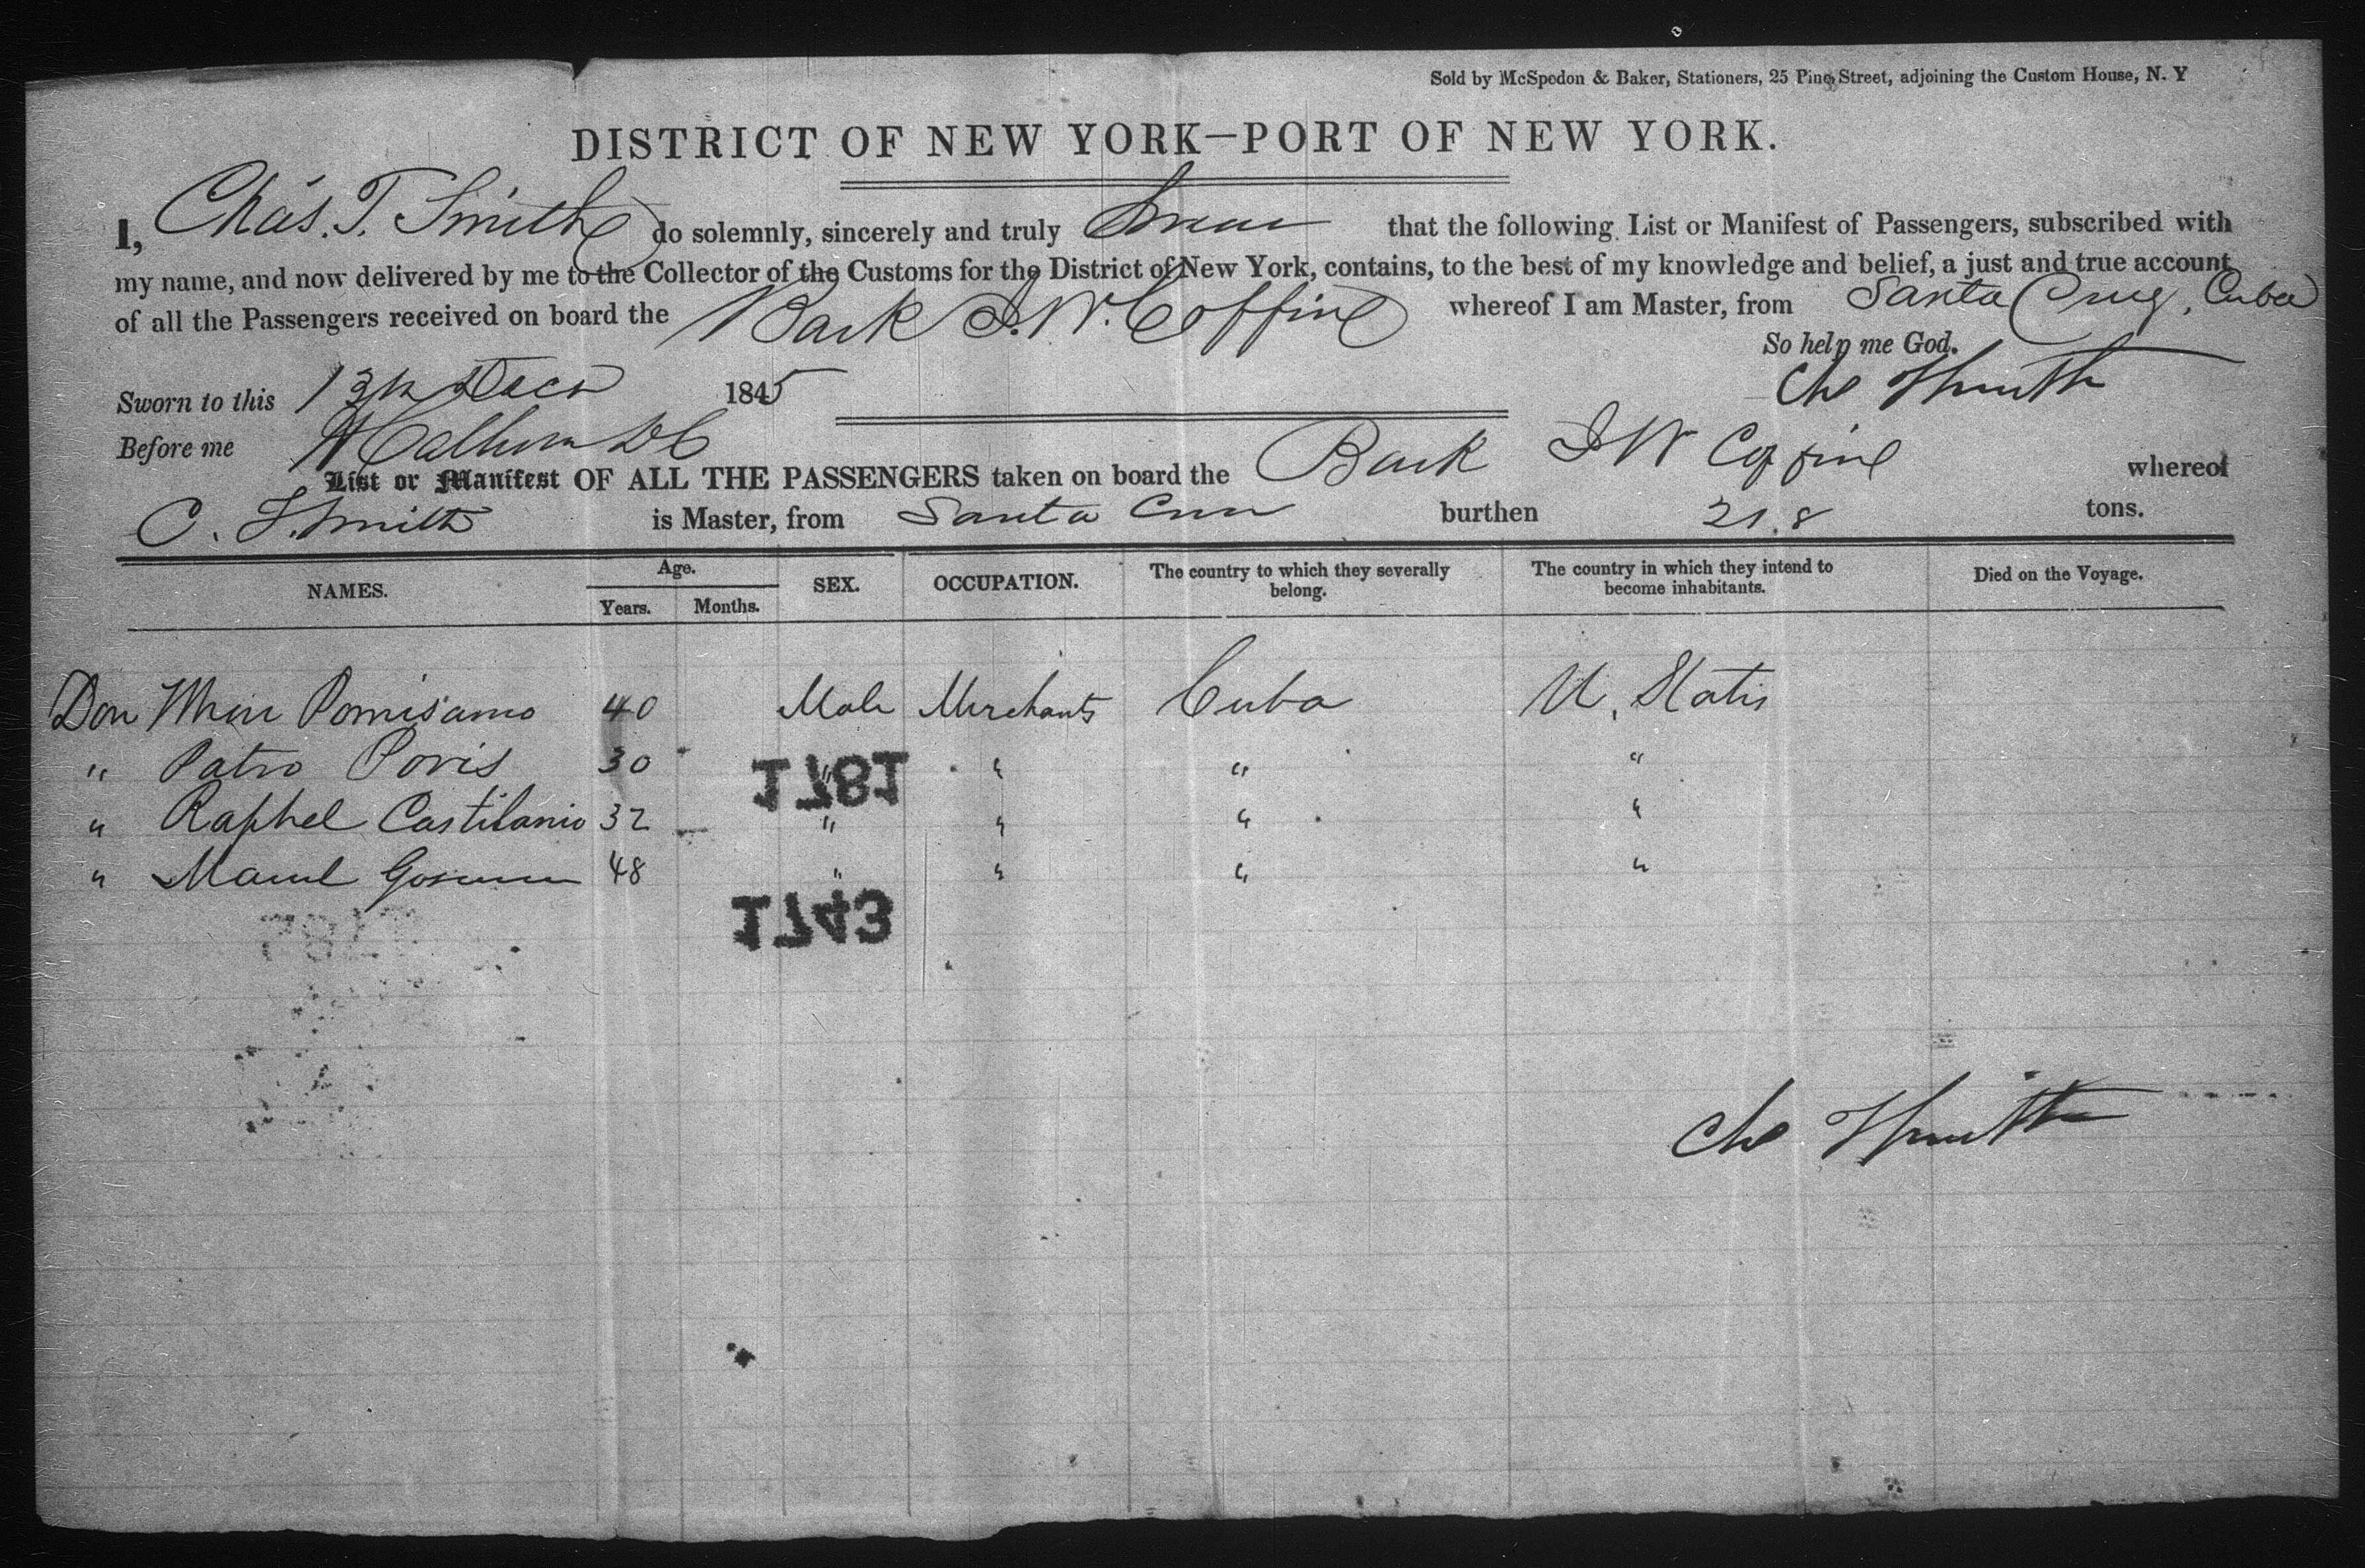 Sold by McSpedon & Baker, Stationers, 25 Pine Street, adjoining the Custom House, N. Y
DISTRICT OF NEW YORK—PORT OF NEW YORK.
I, Chas. T. Smith do solemnly, sincerely and truly Swear that the following List or Manifest of Passengers, subscribed with
my name, and now delivered by me to the Collector of the Customs for the District of New York, contains, to the best of my knowledge and belief, a just and true account
of all the Passengers received on board the Bark J. W. Coffin whereof I am Master, from Santa Cruz, Cuba
So help me God.
Sworn to this 13th Decr 1845
Chs T Smith
Before me
List or Manifest OF ALL THE PASSENGERS taken on board the Bark J W Coffin whereof
C. T. Smith is Master, from Santa Cruz burthen 218 tons.
NAMES. Age. Years. Months. SEX. OCCUPATION. The country to which they severally belong. The country in which they intend to become inhabitants. Died on the Voyage.
Don 40 Male Merchants Cuba U. States
" Patro 30 " " " "
1781
" Raphel Castilanio 32 " " " "
" 48 " " " "
1743
Chs T Smith